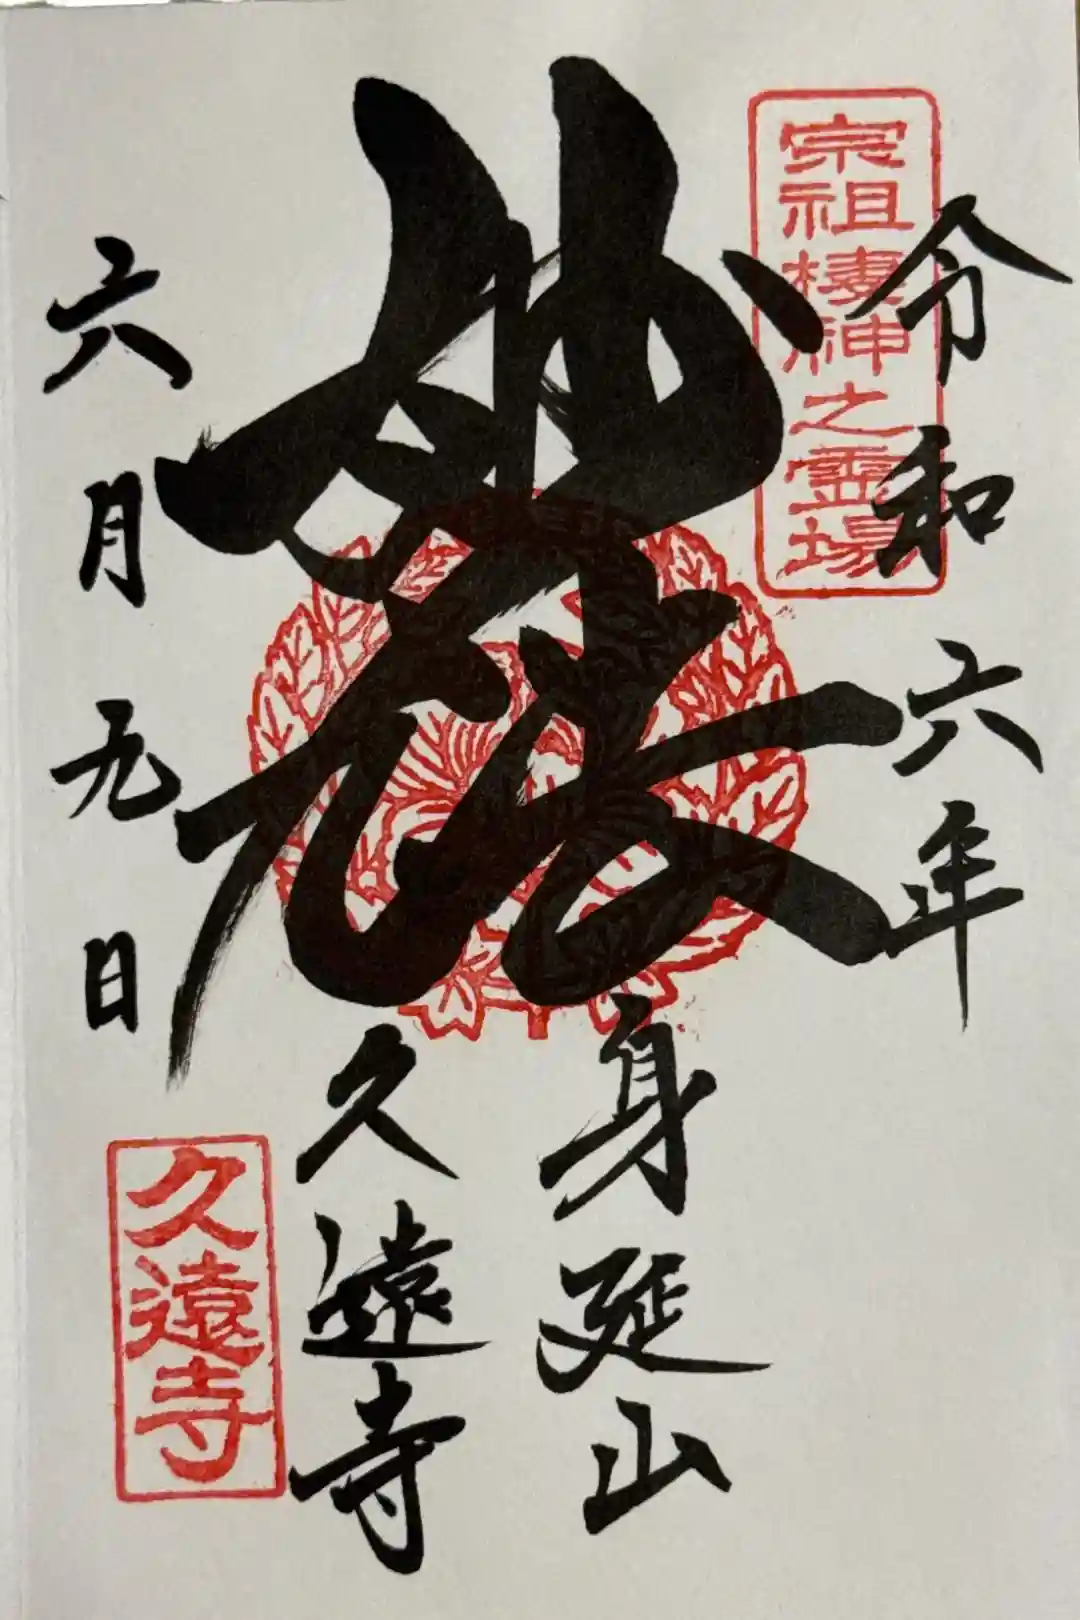 宗祖棲神之霊場
令和六年
妙法
身延山
久遠寺
六月九日
久遠寺